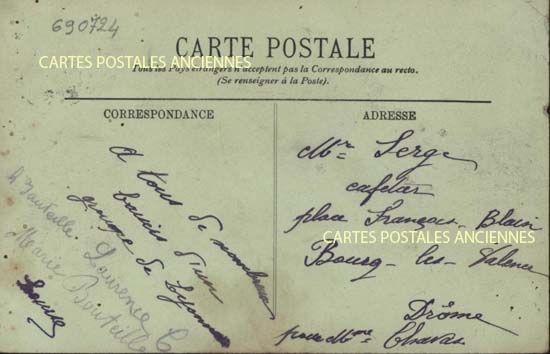 690724
CARTE POSTALE
CARTES POSTALES ANCIENNES
Tous les Pays étrangers n'acceptent pas la Correspondance au recto.
(Se renseigner à la Poste).
CORRESPONDANCE
A tous de nombreux
baisers d'un
groupe de Lyonnais
Laurence C
Marie Bouteille
Louise
ADRESSE
Mr Serge
cafetier
place François-Blain
CARTES POSTALES ANCIENNES
Bourg-les-Valence
Drôme
pour Mme Chavas